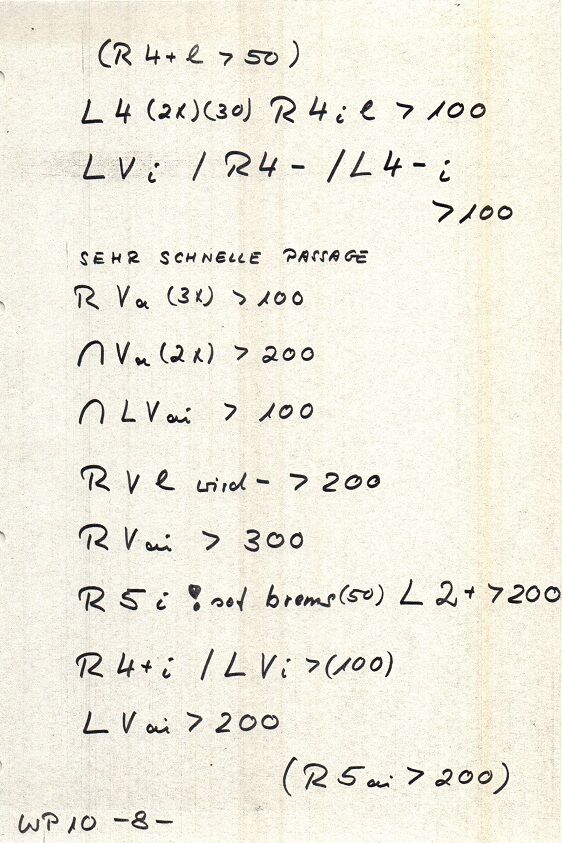 (R 4+ l > 50)
L 4 (2x)(30) R 4 i l > 100
L V i / R 4 - / L 4 - i
> 100
SEHR SCHNELLE PASSAGE
R Va (3x) > 100
∩ Va (2x) > 200
∩ L Vai > 100
R V l wird - > 200
R Vai > 300
R 5 i ! sof brems (50) L 2+ > 200
R 4+ i / L V i > (100)
L Vai > 200
(R 5 ai > 200)
WP 10 -8-